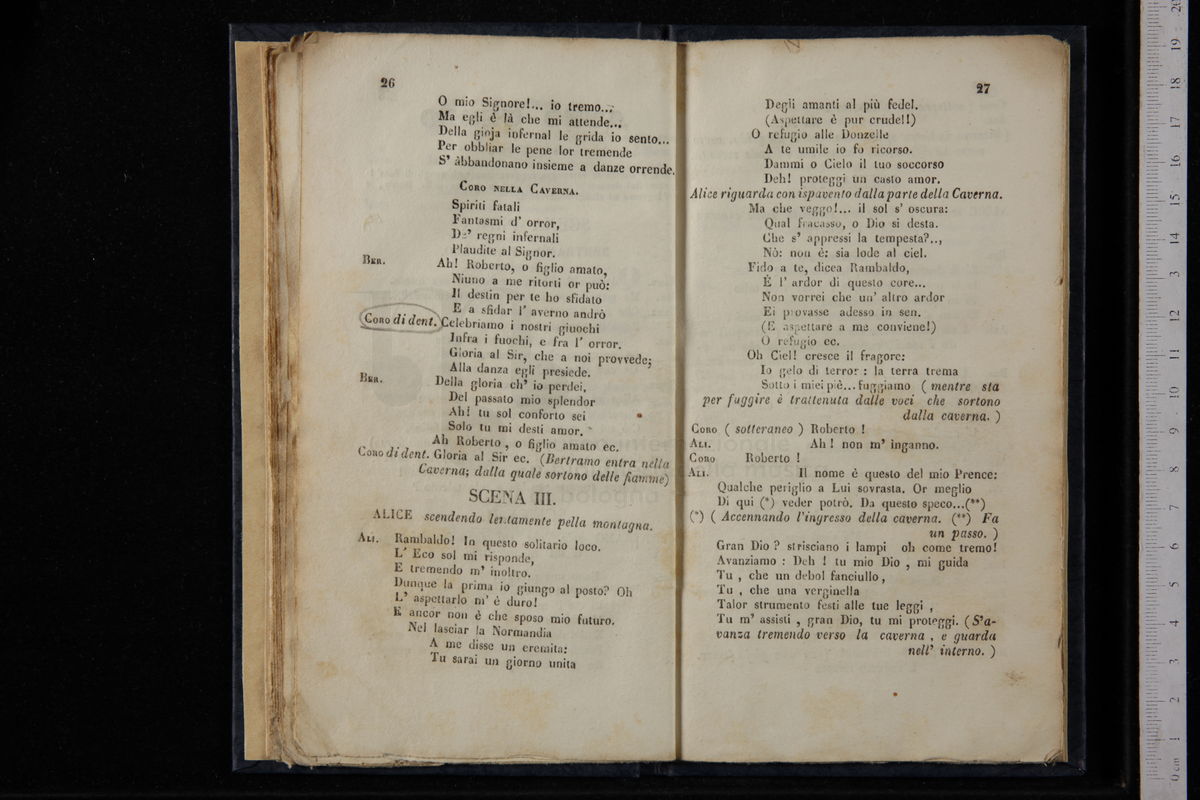 26
O mio Signore!... io tremo...
Ma egli è là che mi attende...
Della gioja infernal le grida io sento...
Per obbliar le pene lor tremende
S' abbandonano insieme a danze orrende.
CORO NELLA CAVERNA.
Spiriti fatali
Fantasmi d' orror,
De' regni infernali
Plaudite al Signor.
BER. Ah! Roberto, o figlio amato,
Niuno a me ritorti or può:
Il destin per te ho sfidato
E a sfidar l' averno andrò
CORO di dent. Celebriamo i nostri giuochi
Infra i fuochi, e fra l' orror.
Gloria al Sir, che a noi provvede;
Alla danza egli presiede.
BER. Della gloria ch' io perdei,
Del passato mio splendor
Ah! tu sol conforto sei
Solo tu mi desti amor.
Ah Roberto, o figlio amato ec.
CORO di dent. Gloria al Sir ec. (Bertramo entra nella
Caverna; dalla quale sortono delle fiamme)
SCENA III.
ALICE scendendo lentamente pella montagna.
ALI. Rambaldo! In questo solitario loco.
L' Eco sol mi risponde,
E tremendo m' inoltro.
Dunque la prima io giungo al posto? Oh
L' aspettarlo m' è duro!
E ancor non è che sposo mio futuro.
Nel lasciar la Normandia
A me disse un eremita:
Tu sarai un giorno unita
27
Degli amanti al più fedel.
(Aspettare è pur crudel!)
O refugio alle Donzelle
A te umile io fo ricorso.
Dammi o Cielo il tuo soccorso
Deh! proteggi un casto amor.
Alice riguarda con ispavento dalla parte della Caverna.
Ma che veggo!... il sol s' oscura:
Qual fracasso, o Dio si desta.
Che s' appressi la tempesta?..,
Nò: non è: sia lode al ciel.
Fido a te, dicea Rambaldo,
È l' ardor di questo core...
Non vorrei che un' altro ardor
Ei provasse adesso in sen.
(E aspettare a me conviene!)
O refugio ec.
Oh Ciel! cresce il fragore:
Io gelo di terror : la terra trema
Sotto i miei piè... fuggiamo ( mentre sta
per fuggire è trattenuta dalle voci che sortono
dalla caverna. )
CORO ( sotteraneo ) Roberto !
ALI. Ah ! non m' inganno.
CORO Roberto !
ALI. Il nome è questo del mio Prence:
Qualche periglio a Lui sovrasta. Or meglio
Di qui (*) veder potrò. Da questo speco...(**)
(*) ( Accennando l'ingresso della caverna. (**) Fa
un passo. )
Gran Dio ? strisciano i lampi oh come tremo!
Avanziamo : Deh ! tu mio Dio , mi guida
Tu , che un debol fanciullo ,
Tu , che una verginella
Talor strumento festi alle tue leggi ,
Tu m' assisti , gran Dio, tu mi proteggi. (S'a-
vanza tremendo verso la caverna , e guarda
nell' interno. )
0 cm 1 2 3 4 5 6 7 8 9 10 11 12 13 14 15 16 17 18 19 20